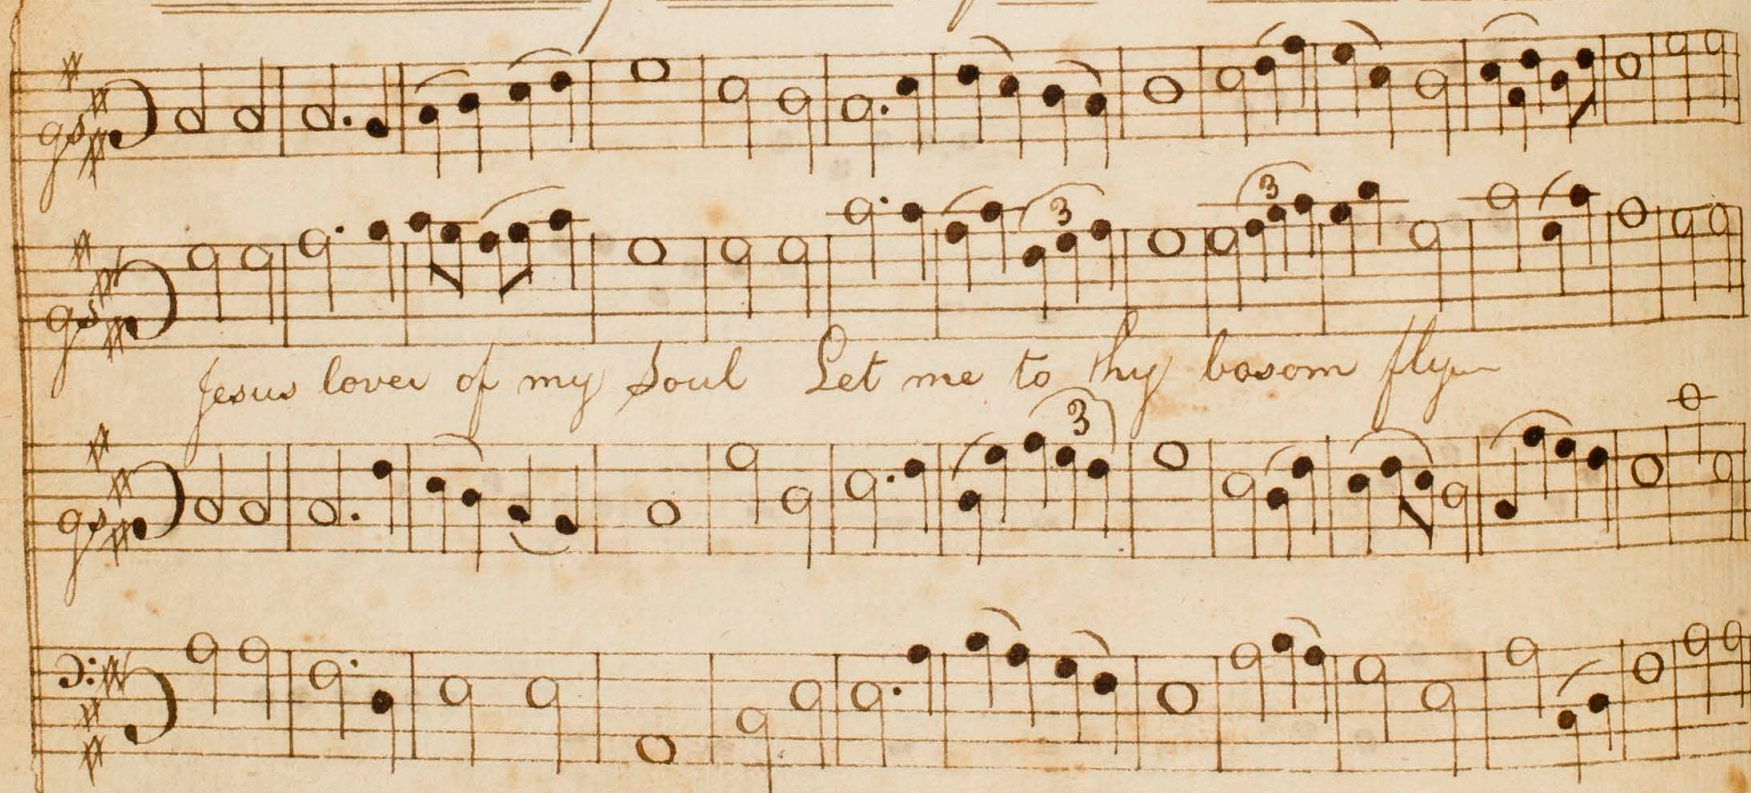 3
3
Jesus lover of my Soul Let me to thy bosom fly
3